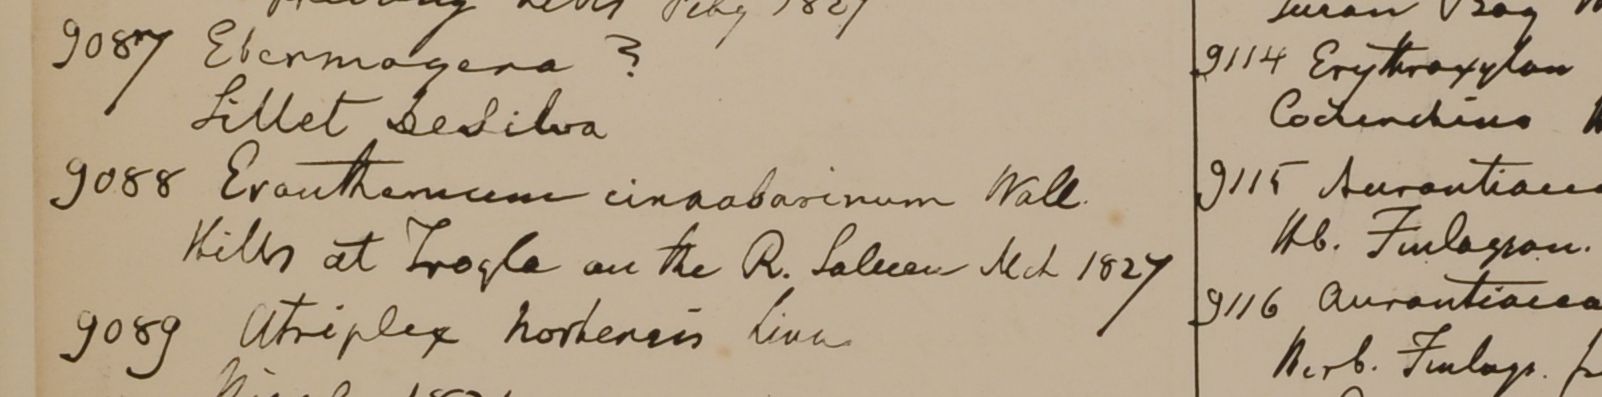 Hills Feby 1827
9087 Ebermayera ?
Sillet DeSilva
9088 Eranthemum cinnabarinum Wall.
Hills at Trogla on the R. Saluen Mch 1827
9089 Atriplex hortensis Linn
9114 Erythroxylon
Cochinchina
9115 Aurantiacea
Hb. Finlayson.
9116 Aurantiacea
Herb. Finlays.